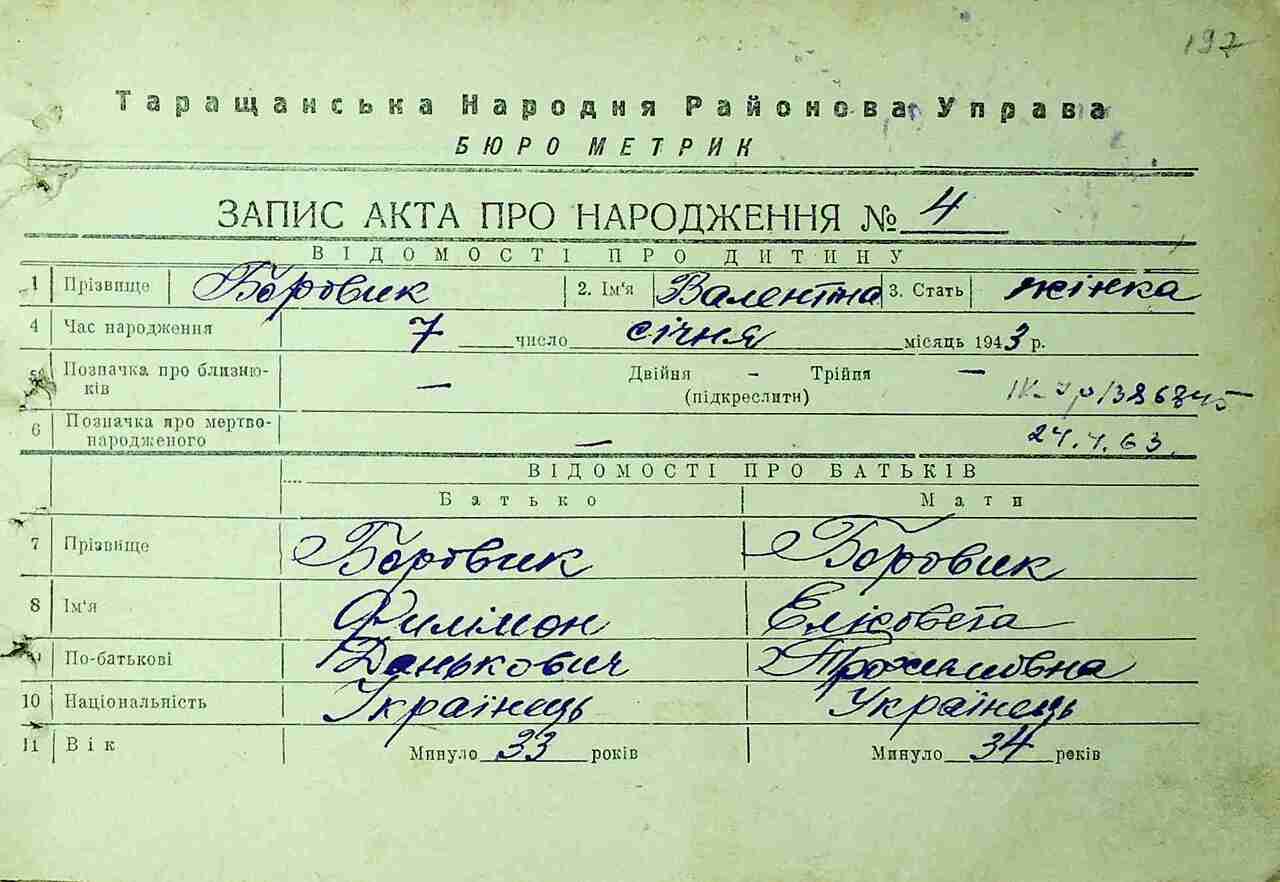 197
Таращанська Народня Районова Управа
БЮРО МЕТРИК
ЗАПИС АКТА ПРО НАРОДЖЕННЯ № 4
ВІДОМОСТІ ПРО ДИТИНУ
1 Прізвище Боровик 2. Ім'я Валентина 3. Стать жінка
4 Час народження 7 число січня місяць 1943 р.
Позначка про близню- — Двійня - Трійня —
ків (підкреслити)
6 Позначка про мертво- — 24.4.63.
народженого
ВІДОМОСТІ ПРО БАТЬКІВ
Батько Мати
7 Прізвище Боровик Боровик
8 Ім'я Филімон Елісовета
По-батькові Данькович Трохимовна
10 Національність Українець Українець
11 Вік Минуло 33 років Минуло 34 років